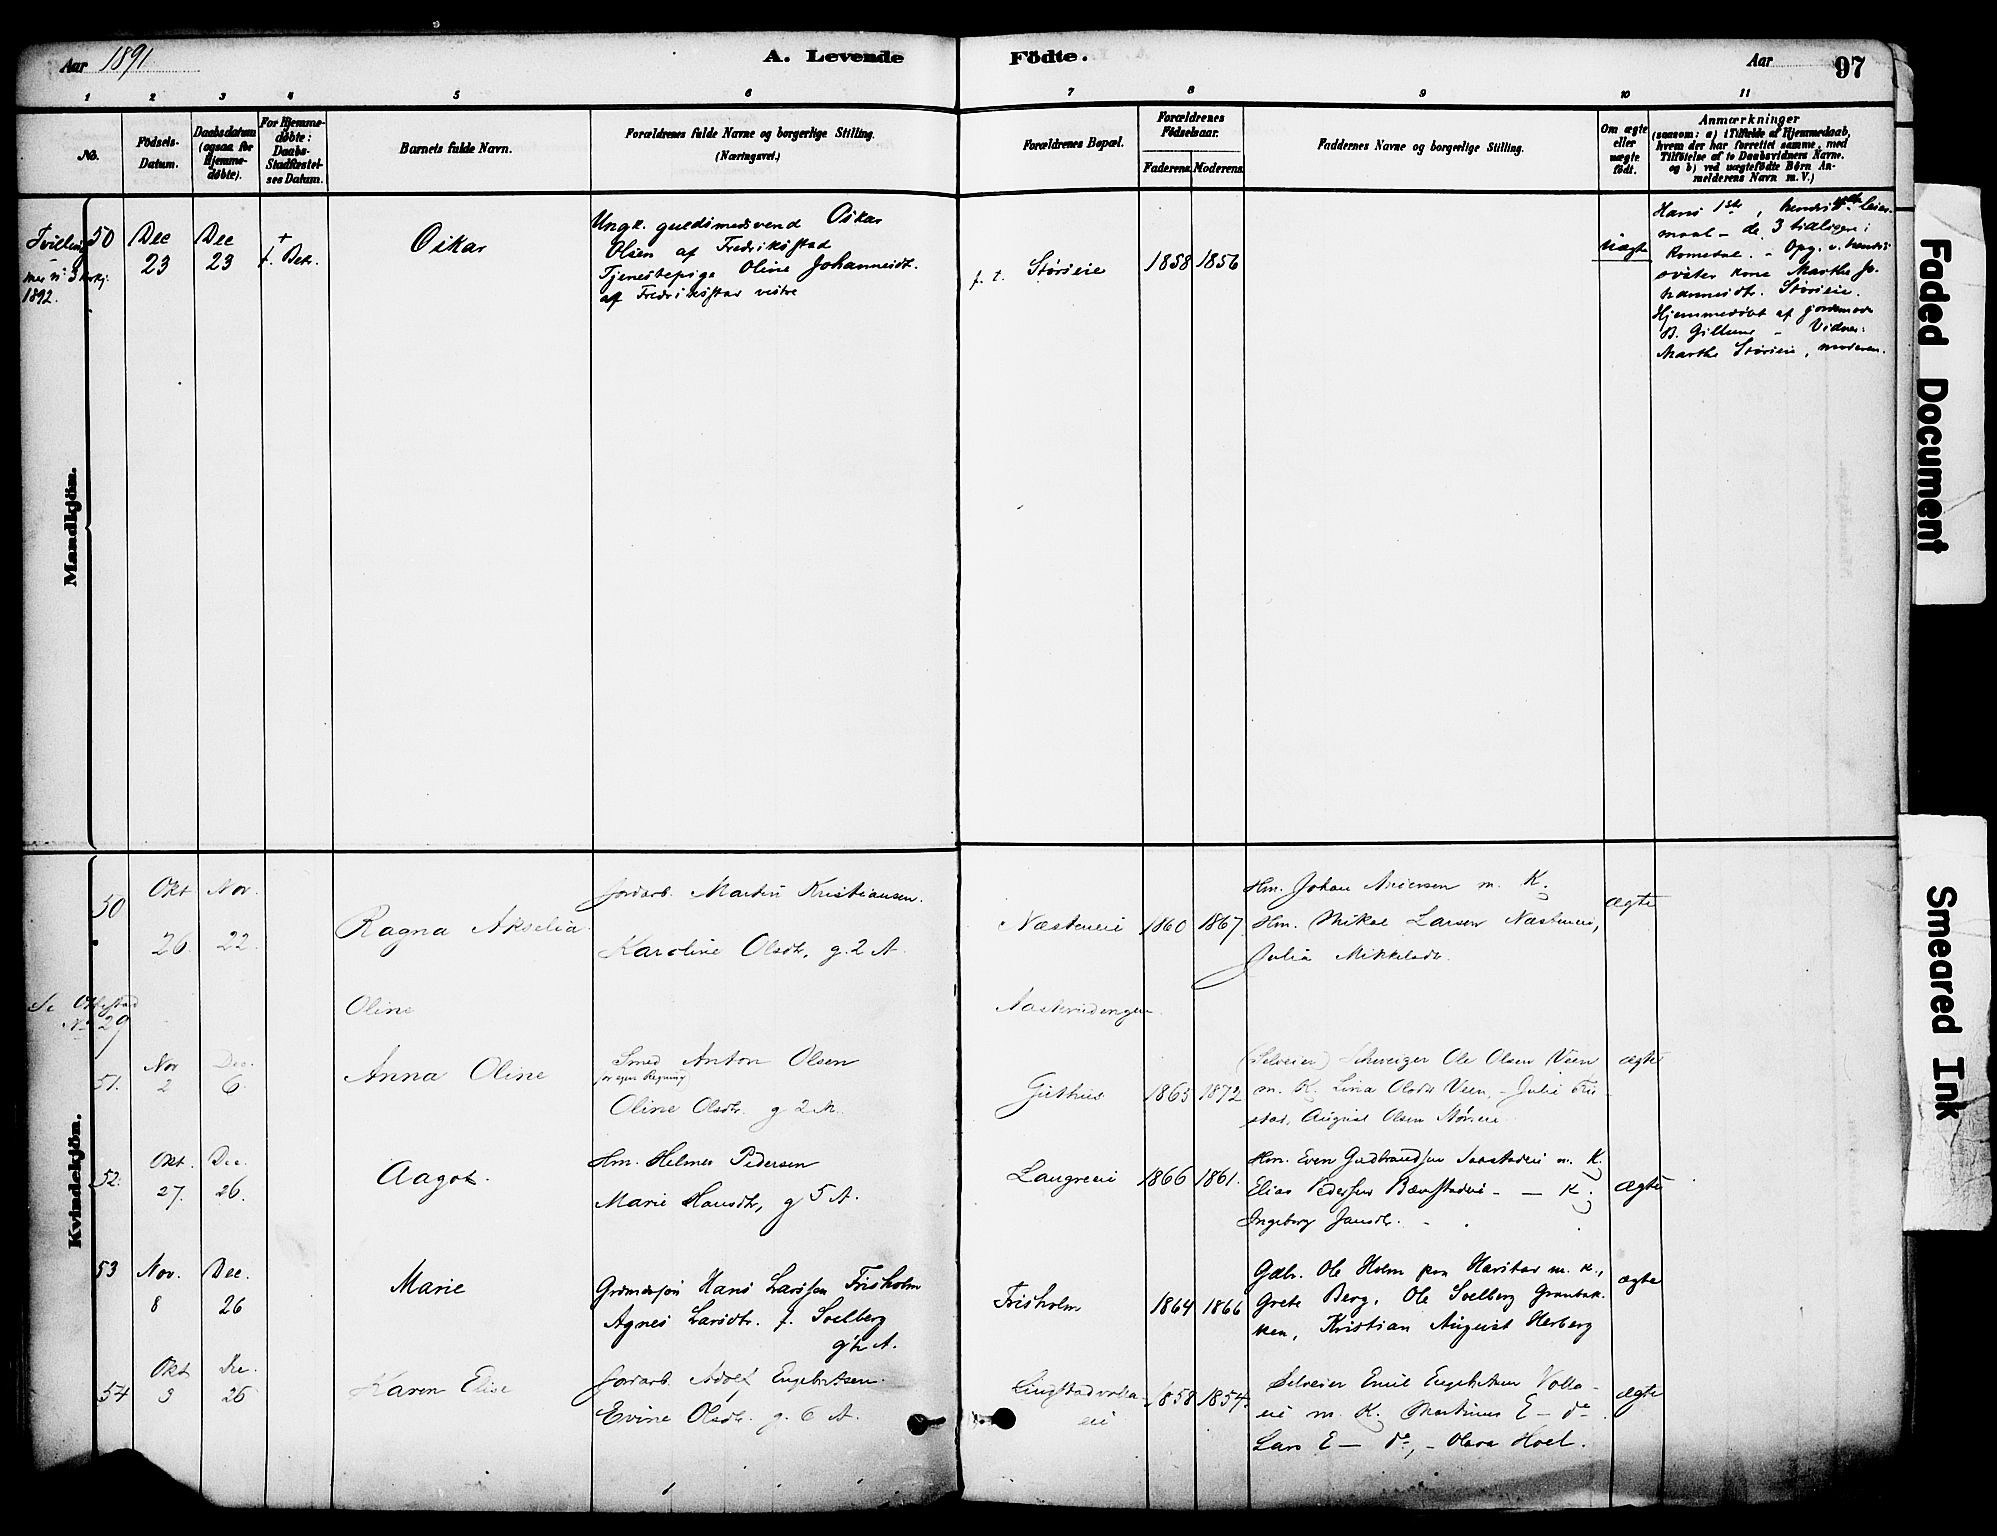 Aar 1891
A. Levende
Födte.
Aar
97
1 2 3 4 5 6 7 8 9 10 11
No.
Födsels-
Datum.
Daabsdatum
(ogsaa for
Hjemme-
døbte).
For Hjemme-
døbte:
Daabs-
Stadfæstel-
ses Datum.
Barnets fulde Navn.
Forældrenes fulde Navne og borgerlige Stilling.
(Næringsvei.)
Forældrenes Bopæl.
Forældrenes
Födselsaar.
Faderens. Moderens.
Faddernes Navne og borgerlige Stilling.
Om ægte
eller
uægte
født.
Anmærkninger
(saasom: a) i Tilfælde af Hjemmedaab,
hvem der har forrettet samme, med
Tilföielse af to Daabsvidners Navne.
og b) ved uægtefödte Børn An-
melderens Navn m. V.)
Mandkjön.
Tvilling
1892.
50
Dec
23
Dec
23
Oskar
Ungk. guldsmedsvend Oskar
Olsen af Fredrikstad
Tjenestepige Oline Johannesdt.
af Fredrikstad vestre
f. t. Størseie
1858 1856
uægte
Hans 1ste, hendes
maal - de 3 tidligere i
Romedal. - Opg. v. hendes
søster kone Marthe Jo-
hannesdt. Størseie.
Hjemmedøbt af jordmoder
B. Gillund - Vidner:
Marthe Størseie, moderen.
Kvindekjön.
50
Okt
26
Nov.
22
Ragna Akselia
Jordarb. Martin Kristiansen.
Karoline Olsdtr, g. 2 A.
1860 1867
Hm. Johan Andersen m. K.
Hm. Mikal Larsen
Julia Mikkelsdr.
ægte
Se Ottestad
No 29
Oline
51.
Nov
2
Dec.
6
Anna Oline
Smed Anton Olsen
(for egen Regning)
Oline Olsdtr. g 2 A.
Guthus
1865 1872
(Selveier) Schweizer Ole Olsen Veen
m. K. Lina Olsdtr Veen, - Julie Fri-
stad, August Olsen Størseie
ægte
52.
Okt.
27.
Dec.
26.
Aagot.
Hm. Helmer Pedersen
Marie Hansdtr, g 5 A.
1866 1861.
Hm. Even Gudbrandsen m. K.
Elias Pedersen - — K.
Ingeborg Jansdtr.
ægte
53
Nov.
8
Dec.
26
Marie
Grdmdssøn Hans Larssen Frisholm
Agnes Larsdtr. f. Solberg
g ½ A.
Frisholm
1864 1866
Gdbr. Ole Holm paa Harstad m. k.,
Grete Berg, Ole Solberg Grønbak-
ken, Kristian August Herberg
ægte
54
Okt
3
Dec.
26
Karen Elise
Jordarb. Adolf Engebretsen.
Evine Olsdtr. g. 6 A.
1858 1854.
Selveier Emil Engebretsen Volla-
eie m. K. Martinus E — do
Lars E — do, - Olava Hoel.
ægte
Faded Document
Smeared Ink